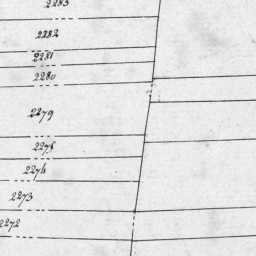 2283
2282
2281
2280
2279
2278
2276
2273
2272